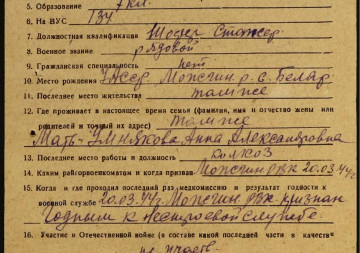 5. Образование 7 кл.
6. На ВУС 134
7. Должностная квалификация Шофер Стажер
8. Военное звание рядовой
9. Гражданская специальность нет
10. Место рождения УАССР, Можгин р. с.
11. Последнее место жительства там же
12. Где проживает в настоящее время семья (фамилия, имя и отчество жены или
родителей и точный их адрес) там же
Мать - Анна Александровна
13. Последнее место работы и должность колхоз
14. Каким райгорвоенкоматом и когда призван Можгин РВК 20.03.44г
15. Когда и где проходил последний раз медкомиссию и результат годности к
военной службе 20.03.44г. Можгин РВК признан
Годным к нестроевой службе
16. Участие в Отечественной войне (в составе какой последней части в качестве
не участв.